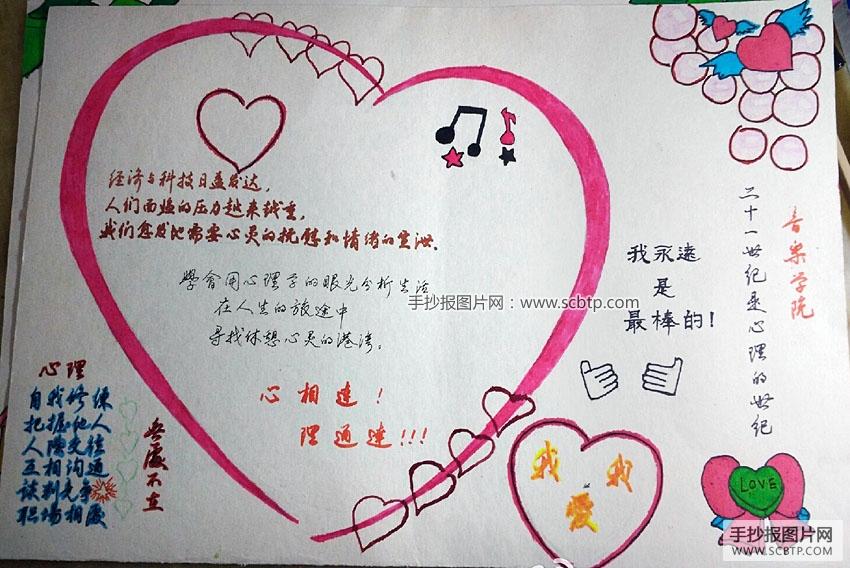 经济与科技日益发达,
人们面临的压力越来越重,
我们愈发地需要心灵的抚慰和情绪的宣泄。
學會用心理学的眼光分析生活
在人生的旅途中
寻找休憩心灵的港湾。
心相连!
理通達!!!
心理
自我修练
把握他人
人际交往
互相沟通
谈判竞争
职场相处
無處不在
我 爱 我
我永遠
是
最棒的!
二十一世纪是心理的世纪
音樂学院
LOVE
手抄报图片网:www.scbtp.com
手抄报图片网
WWW.SCBTP.COM